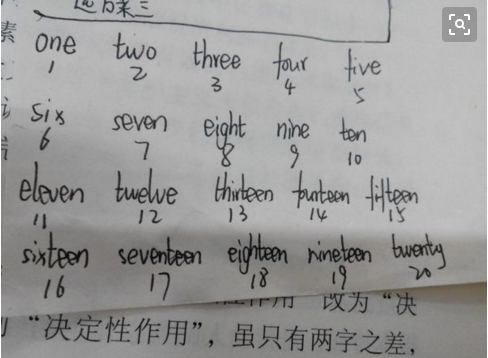 选方案三
素
one two three four five
1 2 3 4 5
six seven eight nine ten
6 7 8 9 10
eleven twelve thirteen fourteen fifteen
11 12 13 14 15
sixteen seventeen eighteen nineteen twenty
16 17 18 19 20
作用”改为“决
“决定性作用”，虽只有两字之差，